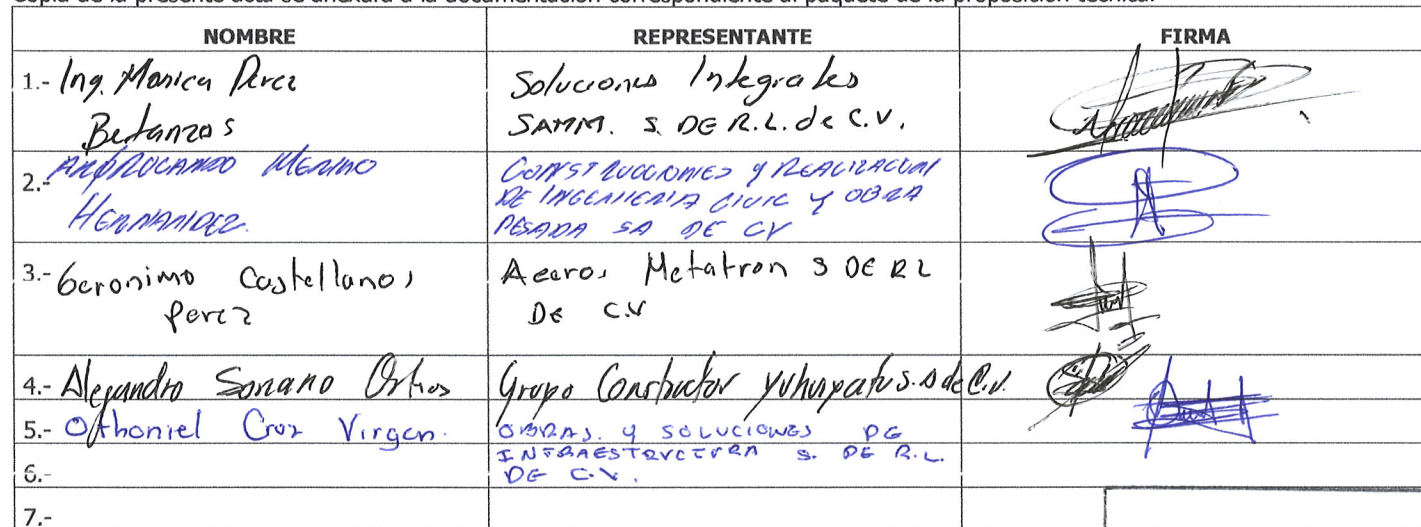 Copia de la presente acta se anexará a la documentación correspondiente al paquete de la proposición técnica.
NOMBRE REPRESENTANTE FIRMA
1.- Ing. Monica Perez Soluciones Integrales
Betanzos SAMM. S. DE R.L. de C.V.
2.- MERINO CONSTRUCCIONES Y REALIZACION
HERNANDEZ. DE INGENIERIA CIVIL Y OBRA
PESADA SA DE CV
3.- Geronimo Castellanos Aceros Metatron S DE RL
Perez DE C.V
4.- Alejandro Soriano Grupo Constructor S.A de C.V.
5.- Othoniel Cruz Virgen. OBRAS. Y SOLUCIONES DE
INFRAESTRUCTURA S. DE R.L.
6.- DE C.V.
7.-